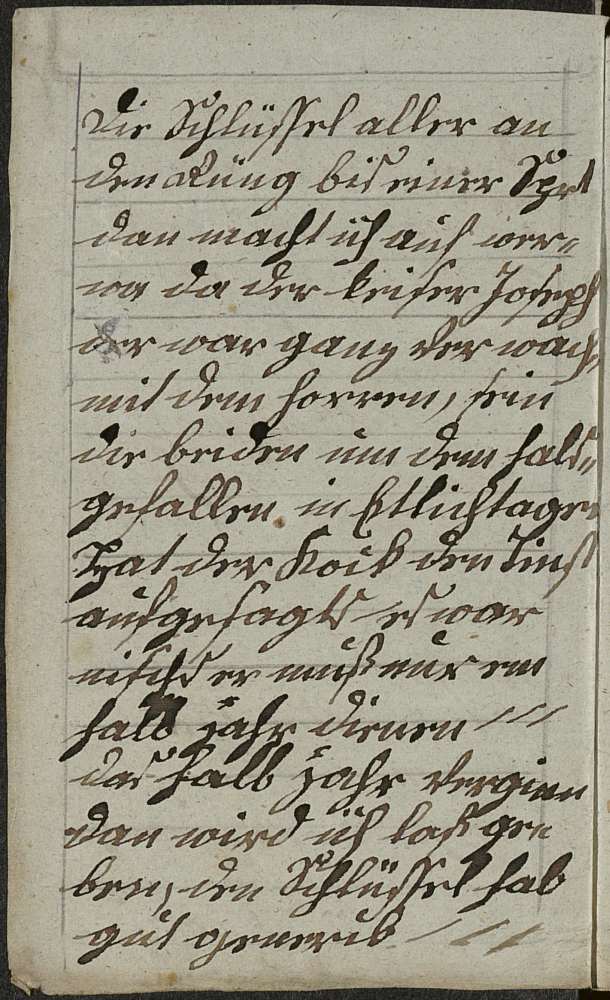 Die Schlüssel aller an
den Rüng bis einer Spet
dan macht ich auf wer=
wa da der keiser Joseph
der war ganz ver wach=
mit dem horren, sein
die beiden um dem hals=
gefallen in Etlich tagen
Hat der Koik den dinst
aufgesagts es war
nischs er muß nur em
halb jahr dienen
das halb jahr vergien
dan wird ich las ge=
ben, den Schlüssel hab
gut generib